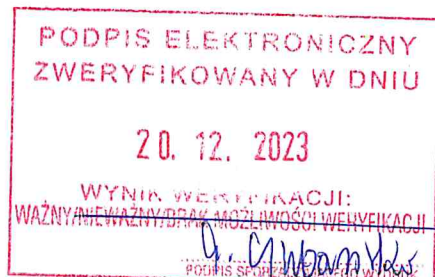 PODPIS ELEKTRONICZNY
ZWERYFIKOWANY W DNIU
20. 12. 2023
WYNIK WERYFIKACJI:
WAŻNY/NIEWAŻNY/BRAK MOŻLIWOŚCI WERYFIKACJI
PODPIS